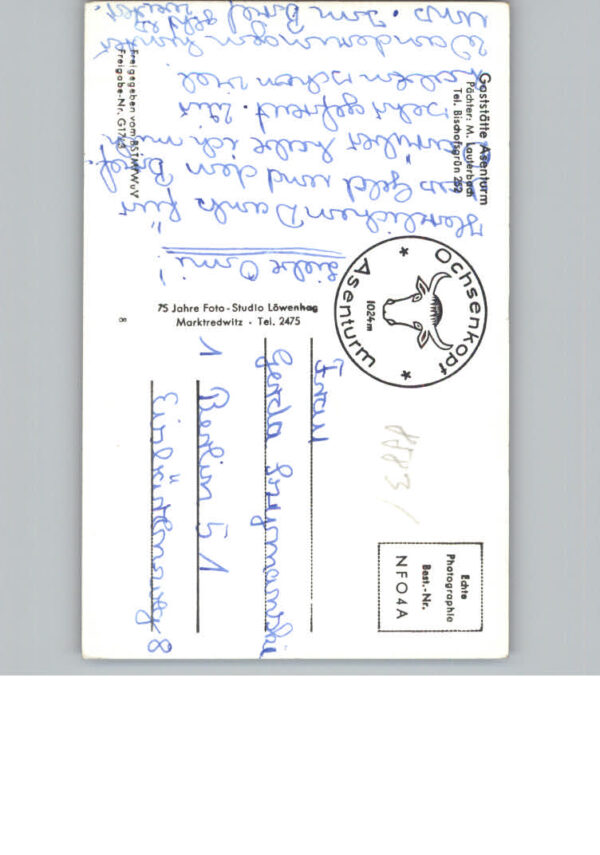 Gaststätte Asenturm
Pächter: M. Lauterbach
Tel. Bischofsgrün 252
Ochsenkopf
1024 m
Asenturm
Liebe Omi!
Herzlichen Dank für
das Geld und den Brief.
darüber habe ich mich
sehr gefreut. Wir
haben schon viel
Wanderungen hinter
uns. Im Brief geht es
weiter.
Freigegeben vom BSTMfWuV
75 Jahre Foto-Studio Löwenhag
Marktredwitz · Tel. 2475
8
Echte
Photographie
Best.-Nr.
NFO4A
Frau
Gerda Szymanski
1 Berlin 51